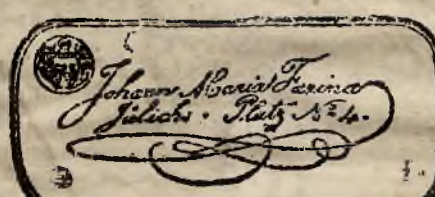 Johann Maria Farina
Jülichs · Platz No 4.